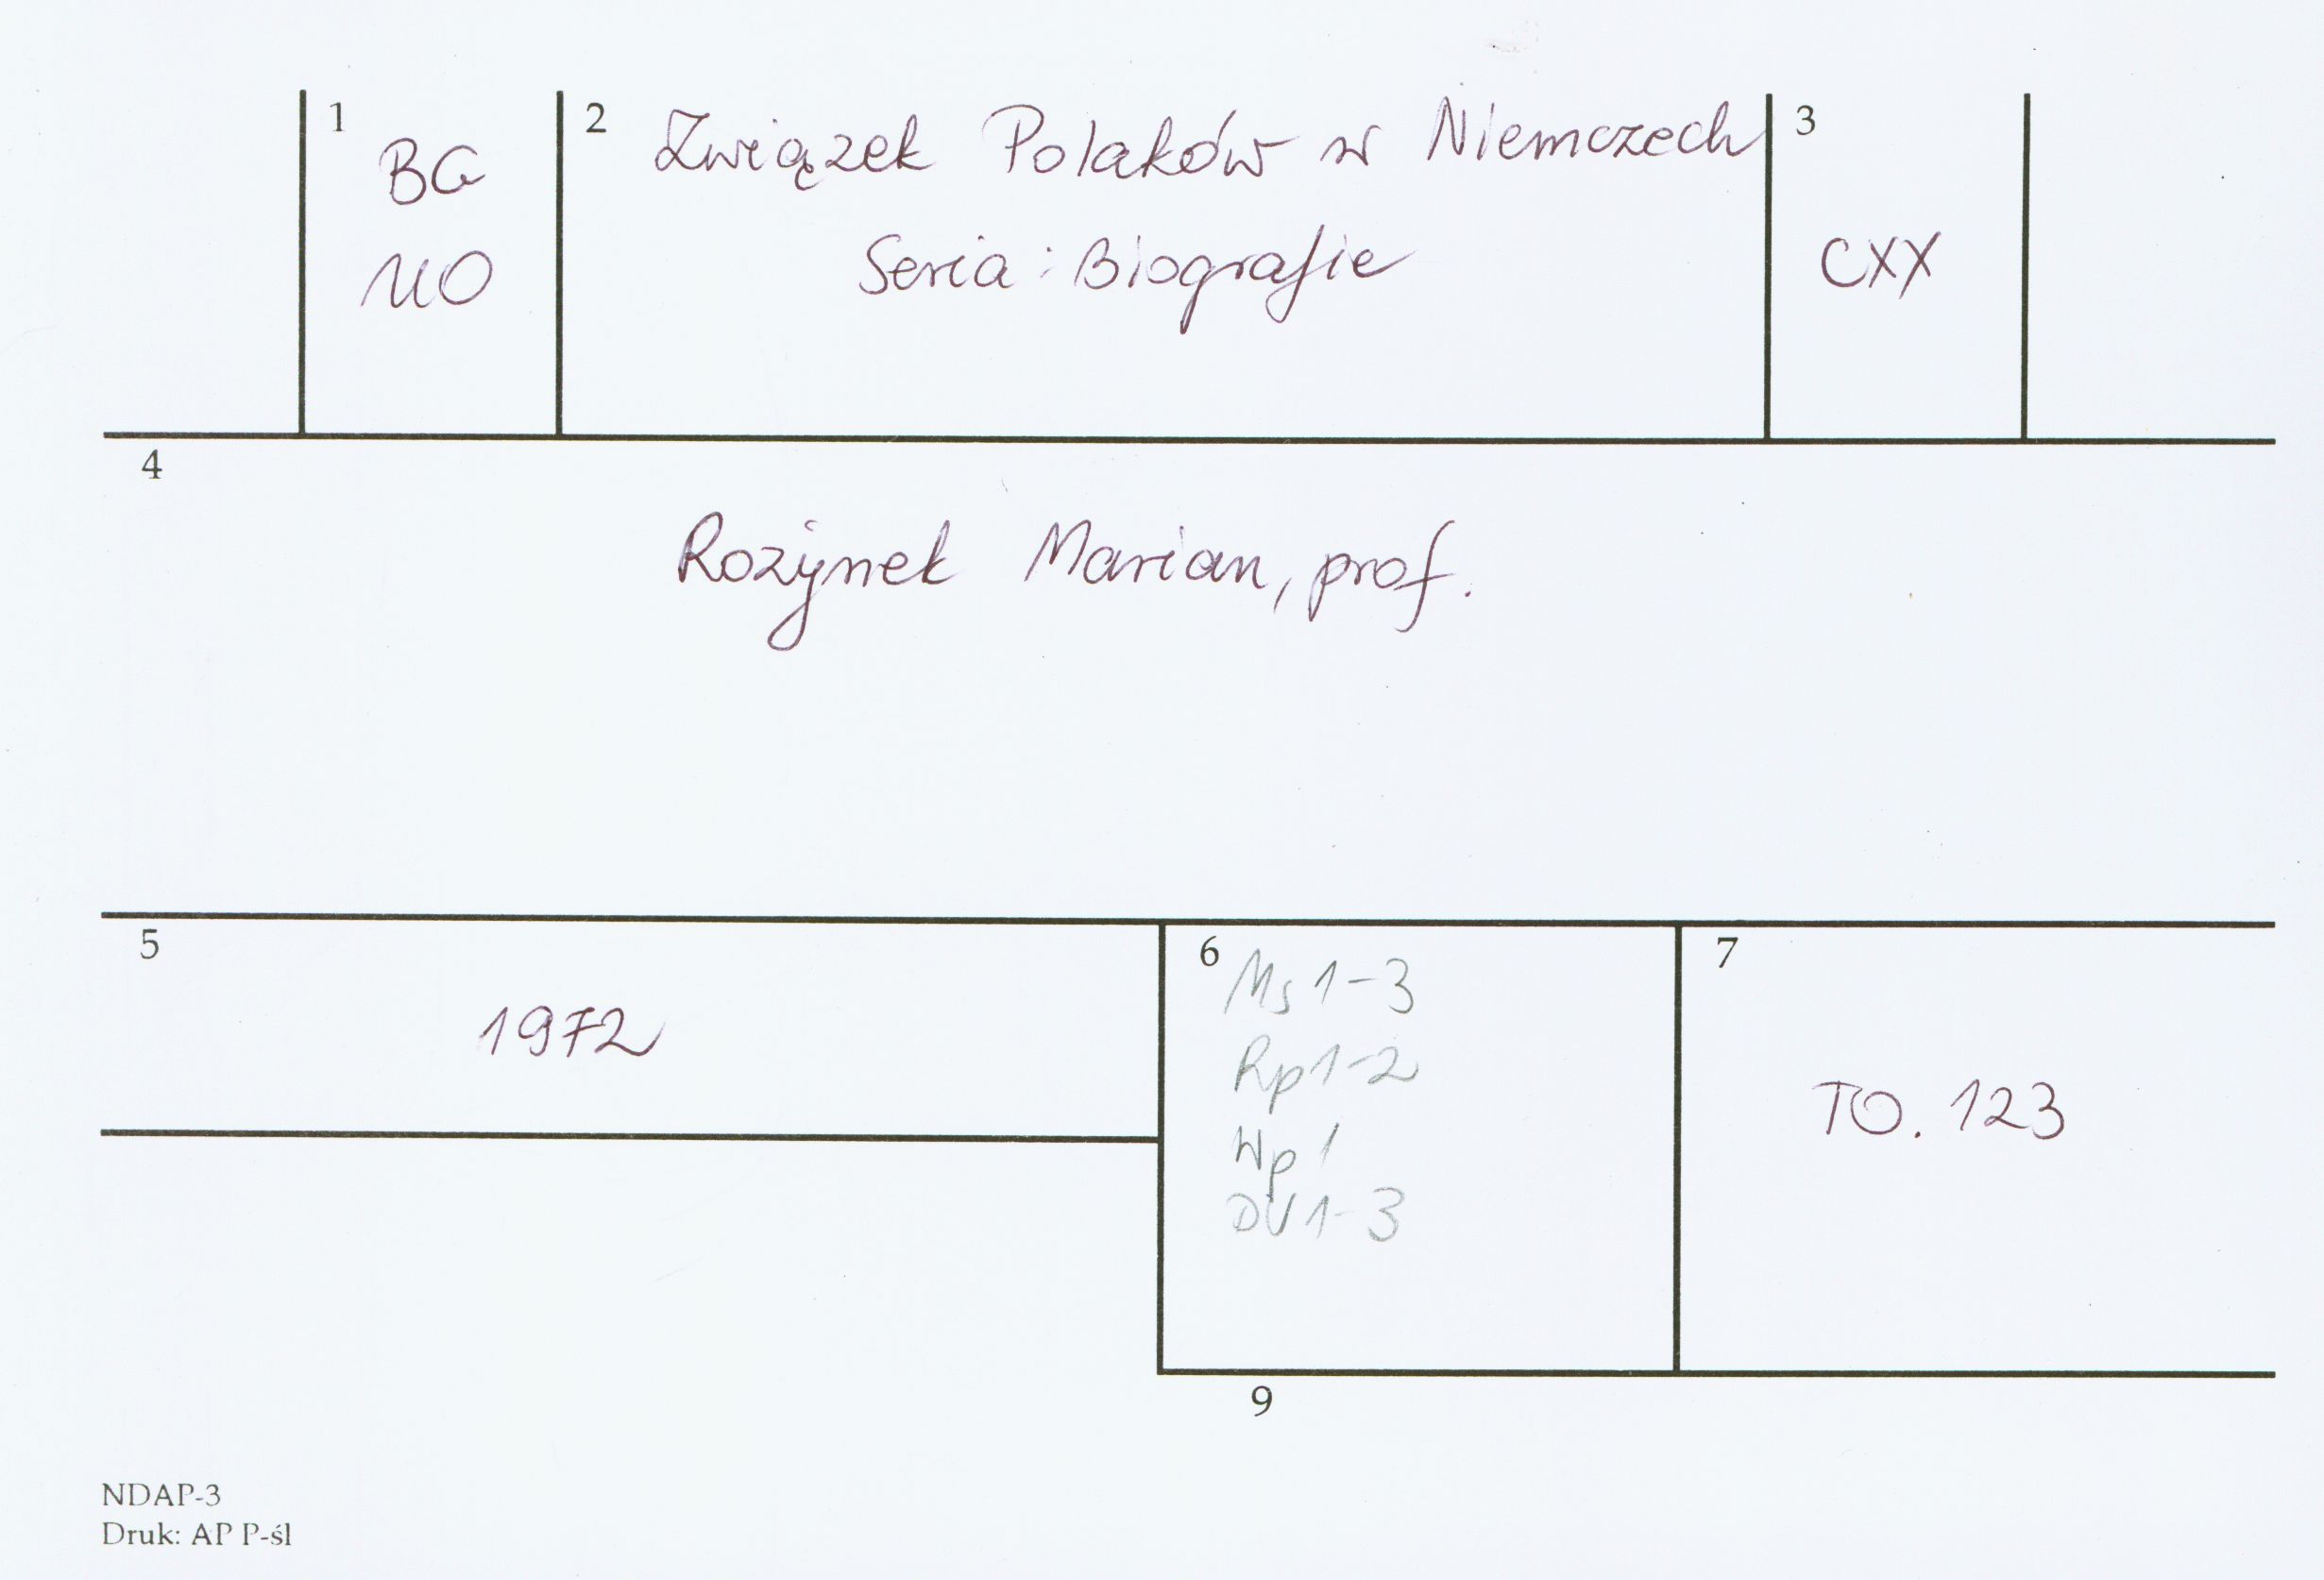 1
BG
UO
2 Związek Polaków w Niemczech
Seria: Biografie
3
CXX
4
Rożynek Marian, prof.
5
1972
6 Ms 1-3
Rp 1-2
Wp 1
DV 1-3
7
TO. 123
9
NDAP-3
Druk: AP P-śl